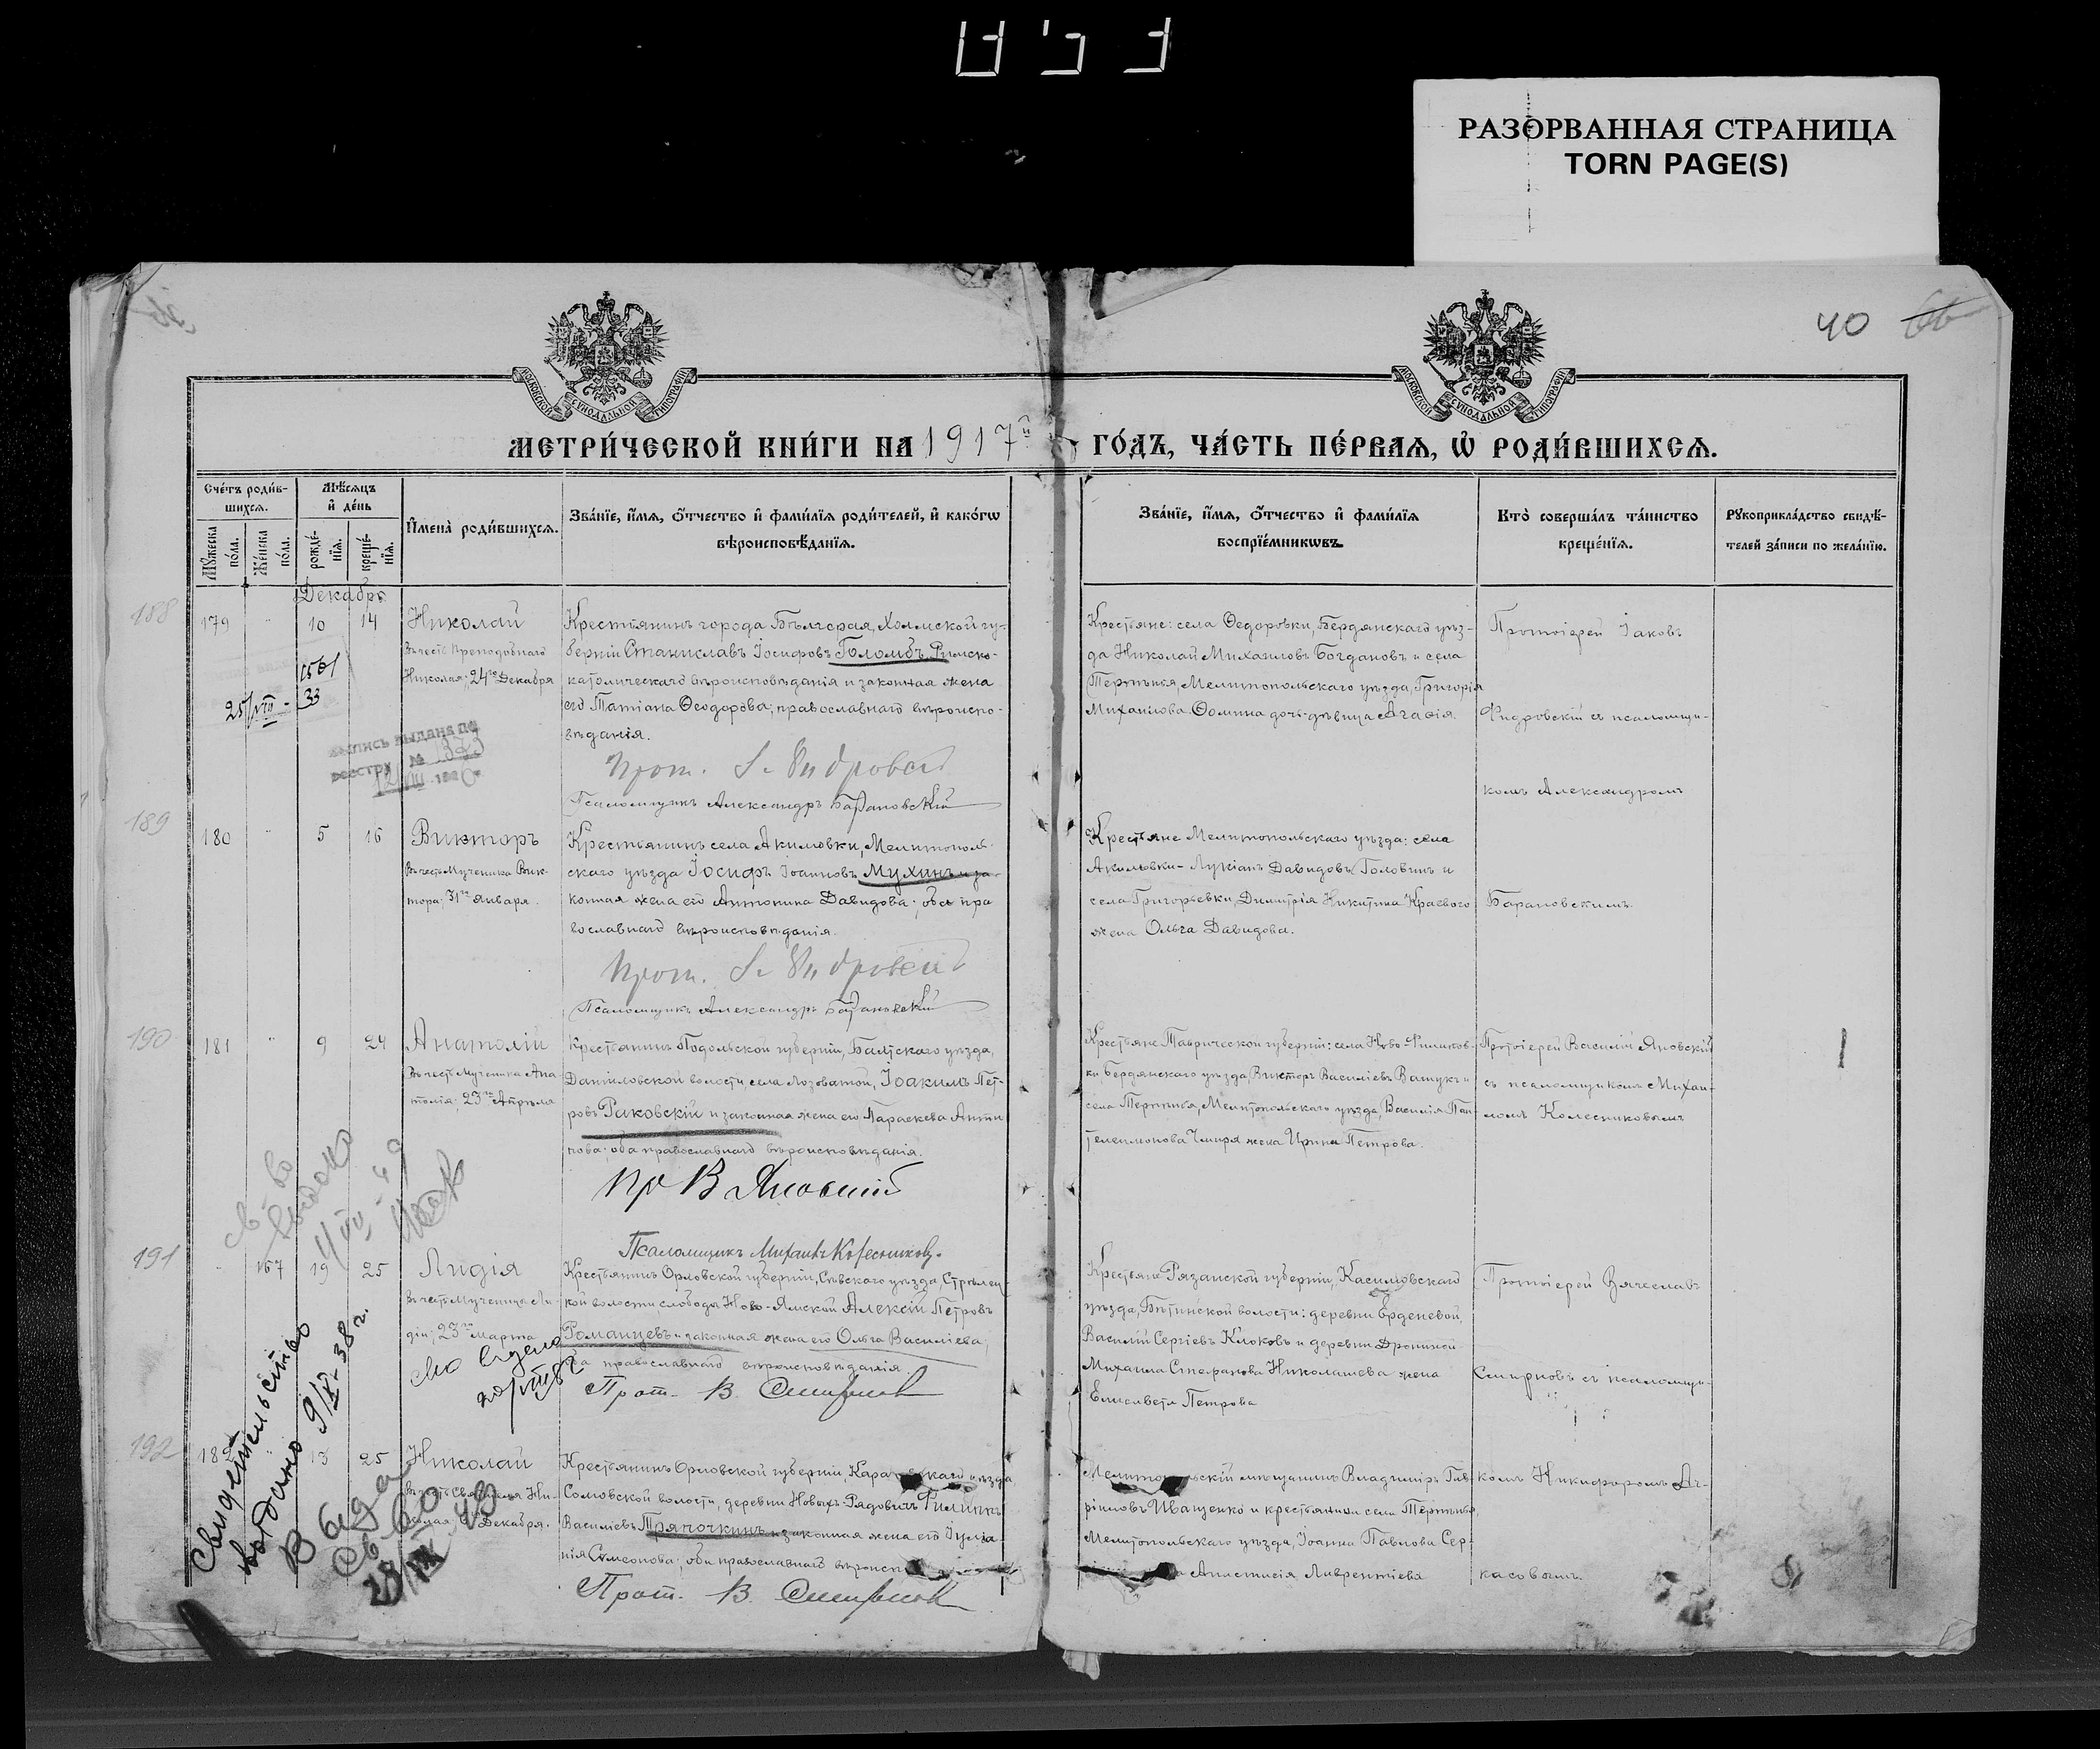 РАЗОРВАННАЯ СТРАНИЦА
TORN PAGE(S)
40
МОСКОВСКОЙ СУНОДАЛЬНОЙ ТИПОГРАФІИ
МОСКОВСКОЙ СУНОДАЛЬНОЙ ТИПОГРАФІИ
МЕТРИ́ЧЕСКОЙ КНИ́ГИ НА 1917й ГО́ДЪ, ЧА́СТЬ ПЕ́РВАЯ, Ѡ РОДИ́ВШИХСЯ.
Сче́тъ роди́в-
шихся.
Мѣ́сяцъ
и де́нь
Мꙋ́жеска по́ла.
Же́нска по́ла.
рожде́-нїя.
креще́-нїя.
Имена̀ роди́вшихся.
Зва́нїе, и́мя, о́тчество и фами́лїя роди́телей, и како́гѡ
вѣроисповѣ́данїя.
Зва́нїе, и́мя, о́тчество и фами́лїя
воспрїе́мникѡвъ.
Кто̀ соверша́лъ та́инство
креще́нїя.
Рꙋкоприкла́дство свидѣ́-
телей за́писи по жела́нїю.
Декабрь
188
179 " 10 14 Николай
Въ честь Преподобнаго
Николая; 24го Декабря
Крестьянинъ города Бѣлгорая, Холмской гу-
берніи Станиславъ Іосифовъ Голомбъ, Римско-
католическаго вѣроисповѣданія и законная жена
его Татіана Ѳеодорова; православнаго вѣроиспо-
вѣданія.
Прот. І. Фидровскій
Псаломщикъ Александръ Барановскій
Крестьяне: села Ѳедоровки, Бердянскаго уѣз-
да Николай Михаиловъ Богдановъ и села
Терпѣнія, Мелитопольскаго уѣзда, Григорія
Михаилова Ѳомина дочь-дѣвица Агафія.
Протоіерей Іаковъ
Фидровскій съ псаломщи-
комъ Александромъ
Барановскимъ.
25/VIII - 33
выпись выдана по
реестру № 1373
189
180 " 5 16 Викторъ
Въ честь Мученика Вик-
тора; 31го Января.
Крестьянинъ села Акимовки, Мелитополь-
скаго уѣзда Іосифъ Іоанновъ Мухинъ и за-
конная жена его Антонина Давидова; оба пра
вославнаго вѣроисповѣданія.
Прот. І. Фидровскій
Псаломщикъ Александръ Барановскій
Крестьяне Мелитопольскаго уѣзда: села
Акимовки - Лукіанъ Давидовъ Головинъ и
села Григорьевки, Димитрія Никитина Краевого
жена Ольга Давидова.
190
181 " 9 24 Анатолій
Въ честь Мученика Ана-
толія; 23го Апрѣля
Крестьянинъ Подольской губерніи, Балтскаго уѣзда,
Даниловской волости, села Лозоватой, Іоакимъ Пет-
ровъ Раковскій и законная жена его Параскева Анти
пова; оба православнаго вѣроисповѣданія.
Пр В Яновскій
Псаломщикъ Михаилъ Колесниковъ.
Крестьяне Таврической губерніи: села Ново-Филипов-
ки, Бердянскаго уѣзда, Викторъ Василіевъ Ващукъ и
села Терпѣнія, Мелитопольскаго уѣзда, Василія Пан-
телеимонова Чмиря жена Ирина Петрова.
Протоіерей Василій Яновскій
съ псаломщикомъ Михаи-
ломъ Колесниковымъ
191
" 167 19 25 Лидія
Въ честь Мученицы Ли-
діи; 23го Марта
Крестьянинъ Орловской губерніи, Сѣвскаго уѣзда, Стрѣлец-
кой волости слободы Ново-Ямской Алексій Петровъ
Романцевъ и законная жена его Ольга Василіева;
оба православнаго вѣроисповѣданія.
Прот. В. Смирновъ
Крестьяне Рязанской губерніи, Касимовскаго
уѣзда, Бѣтинской волости: деревни Ерденевой,
Василій Сергіевъ Клоковъ и деревни Дрониной
Михаила Стефанова Николашева жена
Елисавета Петрова
Протоіерей Вячеславъ
Смирновъ съ псаломщи-
комъ Никифоромъ
касовымъ.
Свидетельство
выдано 9/IX-38 г.
192
182 " 13 25 Николай
Въ честь Святителя Ни-
колая; Декабря.
Крестьянинъ Орловской губерніи, уѣзда,
Соловской волости, деревни Новыхъ-Рядовичъ Филиппъ
Василіевъ Тряпочкинъ и законная жена его Іуліа-
нія Симеонова; оба православнаго
Прот. В. Смирновъ
мѣщанинъ Владиміръ Гав-
ріиловъ Иващенко и крестьянина села Терпѣнія,
Мелитопольскаго уѣзда, Іоанна Павлова Сер-
Анастасія Лаврентіева